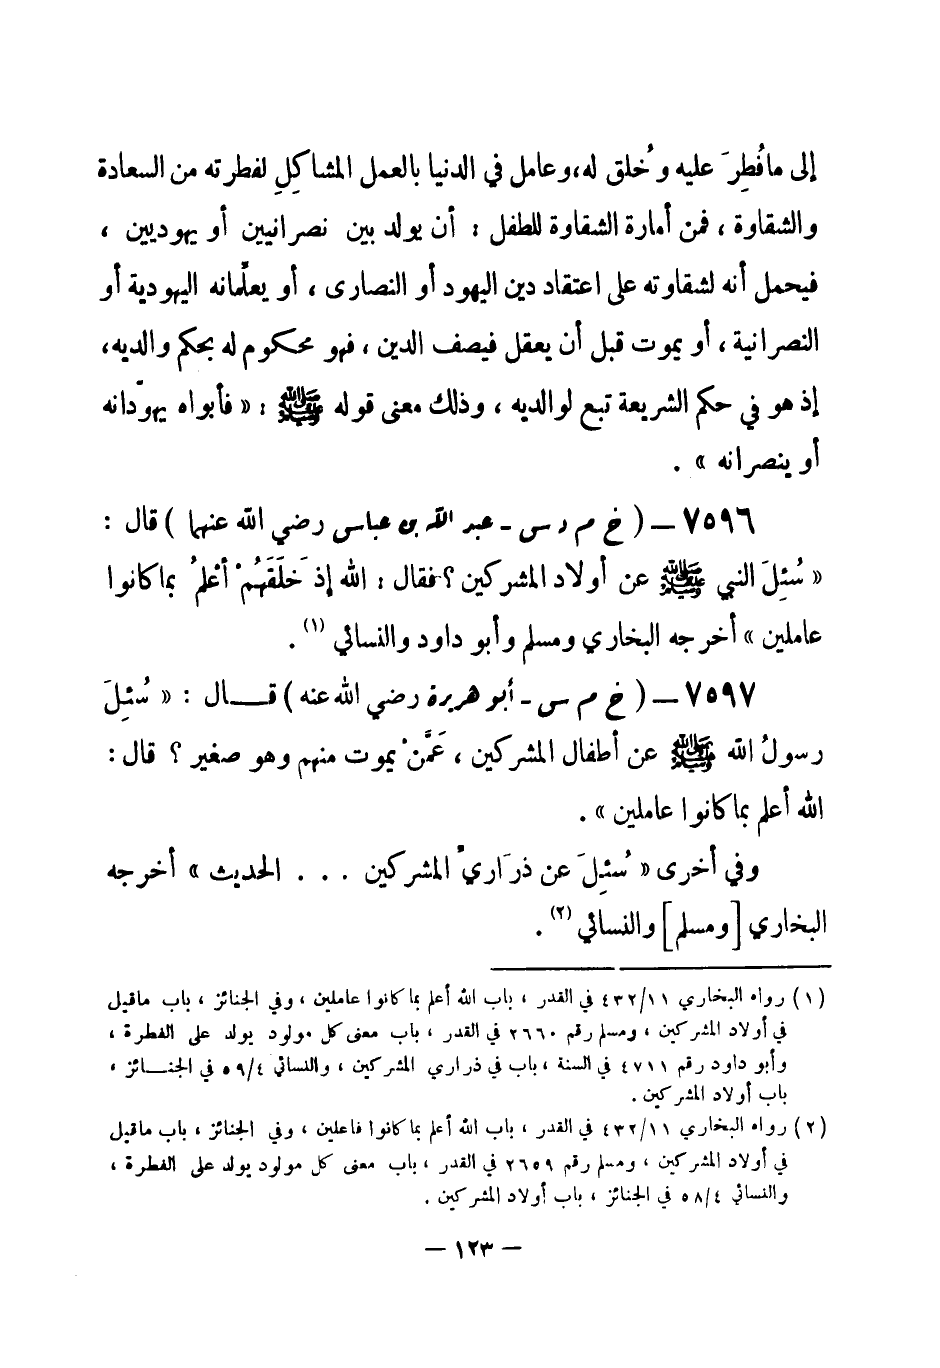 إلى ما فُطِرَ عليه وخُلق له، وعامل في الدنيا بالعمل المشاكِلِ لفطرته من السعادة
والشقاوة ، فمن أمارة الشقاوة للطفل : أن يولد بين نصرانيين أو يهوديين ،
فيحمل أنه لشقاوته على اعتقاد دين اليهود أو النصارى ، أو يعلِّمانه اليهودية أو
النصرانية ، أو يموت قبل أن يعقل فيصف الدين ، فهو محكوم له بحكم والديه،
إذ هو في حكم الشريعة تبع لوالديه ، وذلك معنى قوله ﷺ : « فأبواه يهوّدانه
أو ينصرانه » .
٧٥٩٦ – ( خ م د س - عبد الله بن عباس رضي الله عنهما ) قال :
« سُئِلَ النبي ﷺ عن أولاد المشركين ؟ فقال : الله إذ خَلَقَهُمْ أعْلمُ بما كانوا
عاملين » أخرجه البخاري ومسلم وأبو داود والنسائي (١) .
٧٥٩٧ – ( خ م س - أبو هريرة رضي الله عنه ) قـــال : « سُئِلَ
رسولُ الله ﷺ عن أطفال المشركين ، عَمَّنْ يموت منهم وهو صغير ؟ قال :
الله أعلم بما كانوا عاملين » .
وفي أخرى « سُئِلَ عن ذرَاريِّ المشركين . . . الحديث » أخرجه
البخاري [ومسلم] والنسائي (٢) .
(١) رواه البخاري ٤٣٢/١١ في القدر ، باب الله أعلم بما كانوا عاملين ، وفي الجنائز ، باب ماقيل
في أولاد المشركين ، ومسلم رقم ٢٦٦٠ في القدر ، باب معنى كل مولود يولد على الفطرة ،
وأبو داود رقم ٤٧١١ في السنة ، باب في ذراري المشركين ، والنسائي ٥٩/٤ في الجنـــائز ،
باب أولاد المشركين .
(٢) رواه البخاري ٤٣٢/١١ في القدر ، باب الله أعلم بما كانوا فاعلين ، وفي الجنائز ، باب ماقيل
في أولاد المشركين ، ومسلم رقم ٢٦٥٩ في القدر ، باب معنى كل مولود يولد على الفطرة ،
والنسائي ٥٨/٤ في الجنائز ، باب أولاد المشركين .
– ١٢٣ –